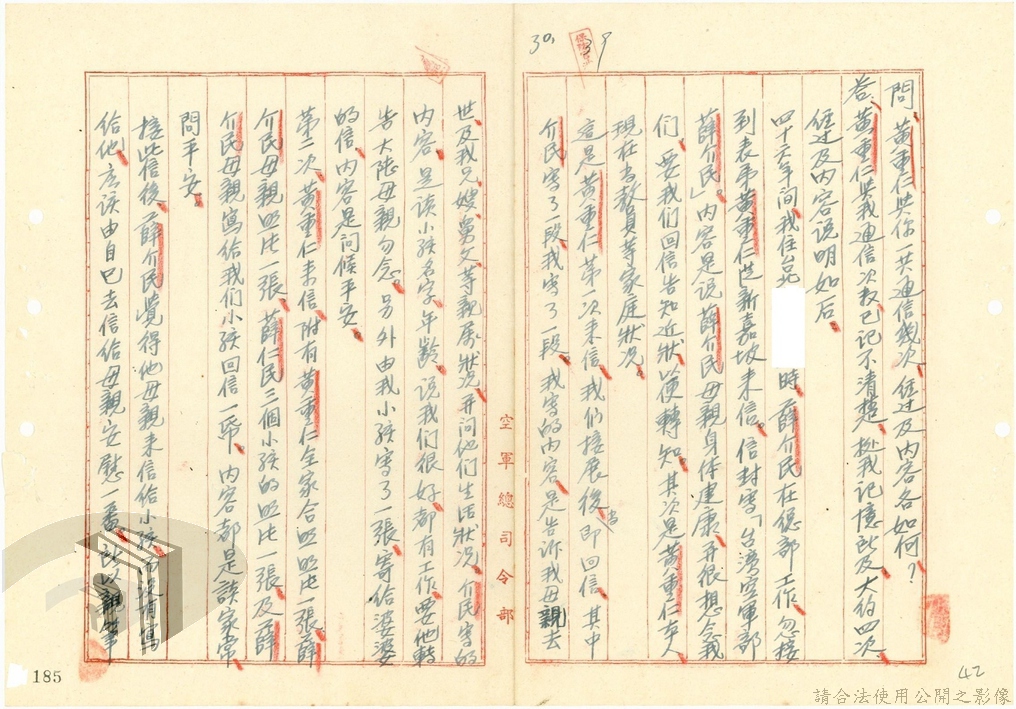 問、黃重仁與你一共通信幾次、經过及內容各如何？
答、黃重仁與我通信次数已記不清楚、據我記憶所及大約四次、
經过及內容說明如后、
四十六年间我住台北
時、薛介民在總部工作、忽接
到表弟黃重仁從新嘉坡来信。信封寫「台灣空軍部
薛介民」。內容是說薛介民母親身体健康、并很想念我
们、要我们回信告知近狀以便轉知、其次是黃重仁本人
現在当教員等家庭狀况、
這是黃重仁第一次来信、我们接展後、当即回信、其中
介民寫了一段、我寫了一段、我寫的內容、是告訴我母親去
世、及我兄嫂、舅父、等親屬狀况、并问他们生活狀况、介民寫的
內容、是该小孩名字、年齡、說我们很好、都有工作、要他轉
告大陆母親勿念。另外由我小孩寫了一張、寄给婆婆
的信、內容是问候平安、
第二次、黃重仁来信、附有黃重仁全家合照照片一張、薛
介民母親照片一張、薛仁民三個小孩的照片一張、及薛
介民母親寫给我们小孩回信一帋、內容都是談家常、
問平安、
接此信後、薛介民覺得他母親来信给小孩、而沒有寫
给他、应该由自己去信给母親安慰一番、所以親筆
空軍總司令部
185
42
請合法使用公開之影像